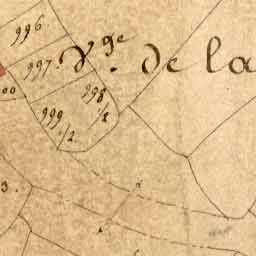 996
997. V.ge de la
998 1/2
999 1/2
00
3.